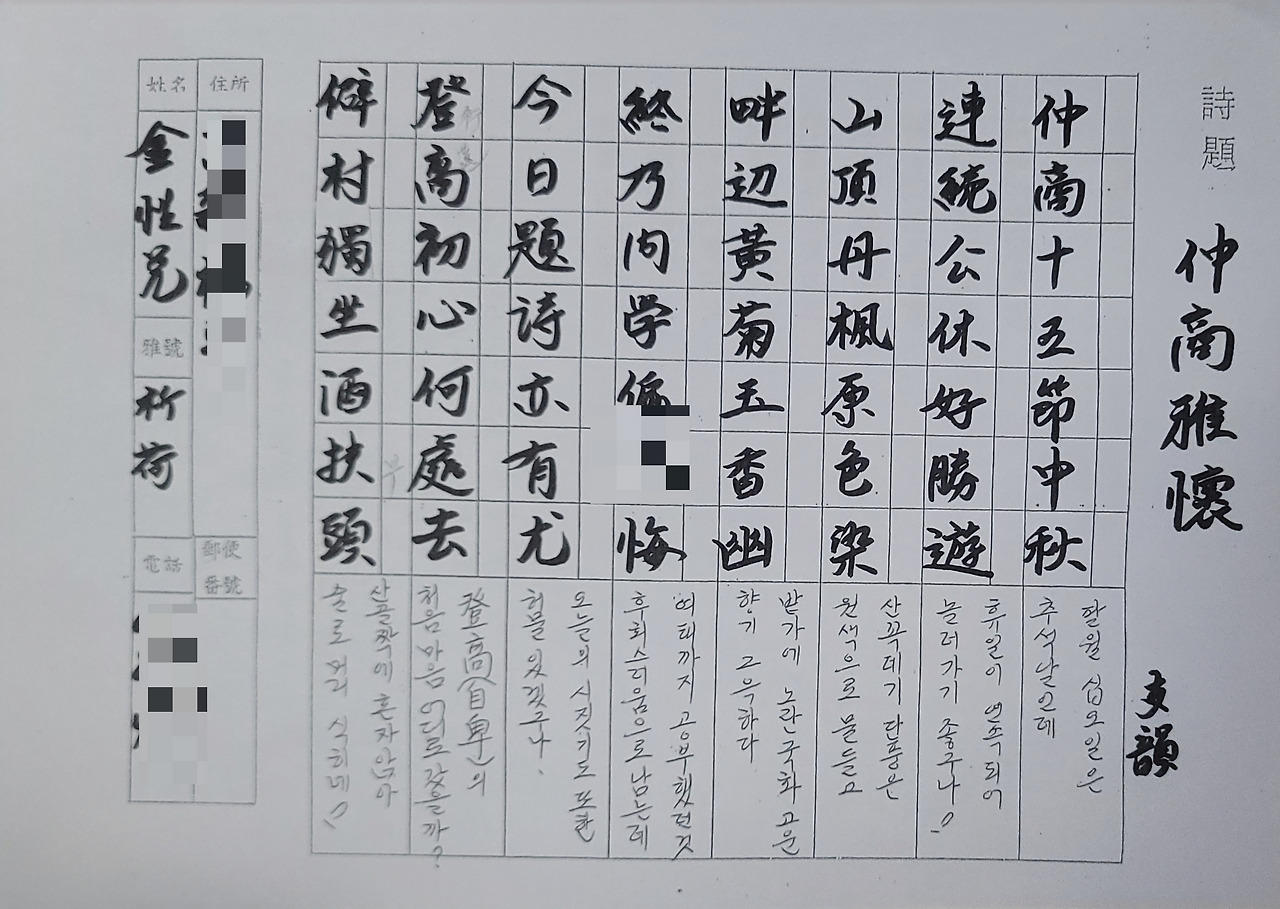 詩題 仲商雅懷
支韻
仲商十五節中秋
팔월 십오일은
추석날인데
連続公休好勝遊
휴일이 연속되어
놀러가기 좋구나!
山頂丹楓原色染
산꼭데기 단풍은
원색으로 물들고
畔辺黃菊玉香幽
밭가에 노란국화 고운
향기 그윽하다
終乃内学偏 悔
여태까지 공부했던것
후회스러움으로 남는데
今日題詩亦有尤
오늘의 시짓기도 또한
허물 있겠구나.
登高初心何處去
登高(自卑)의
처음마음 어디로 갔을까?
僻村獨坐酒扶頭
산골짝에 혼자앉아
술로 머리 식히네!
住所
郵便番號
姓名 金性兄
雅號 祈荷
電話